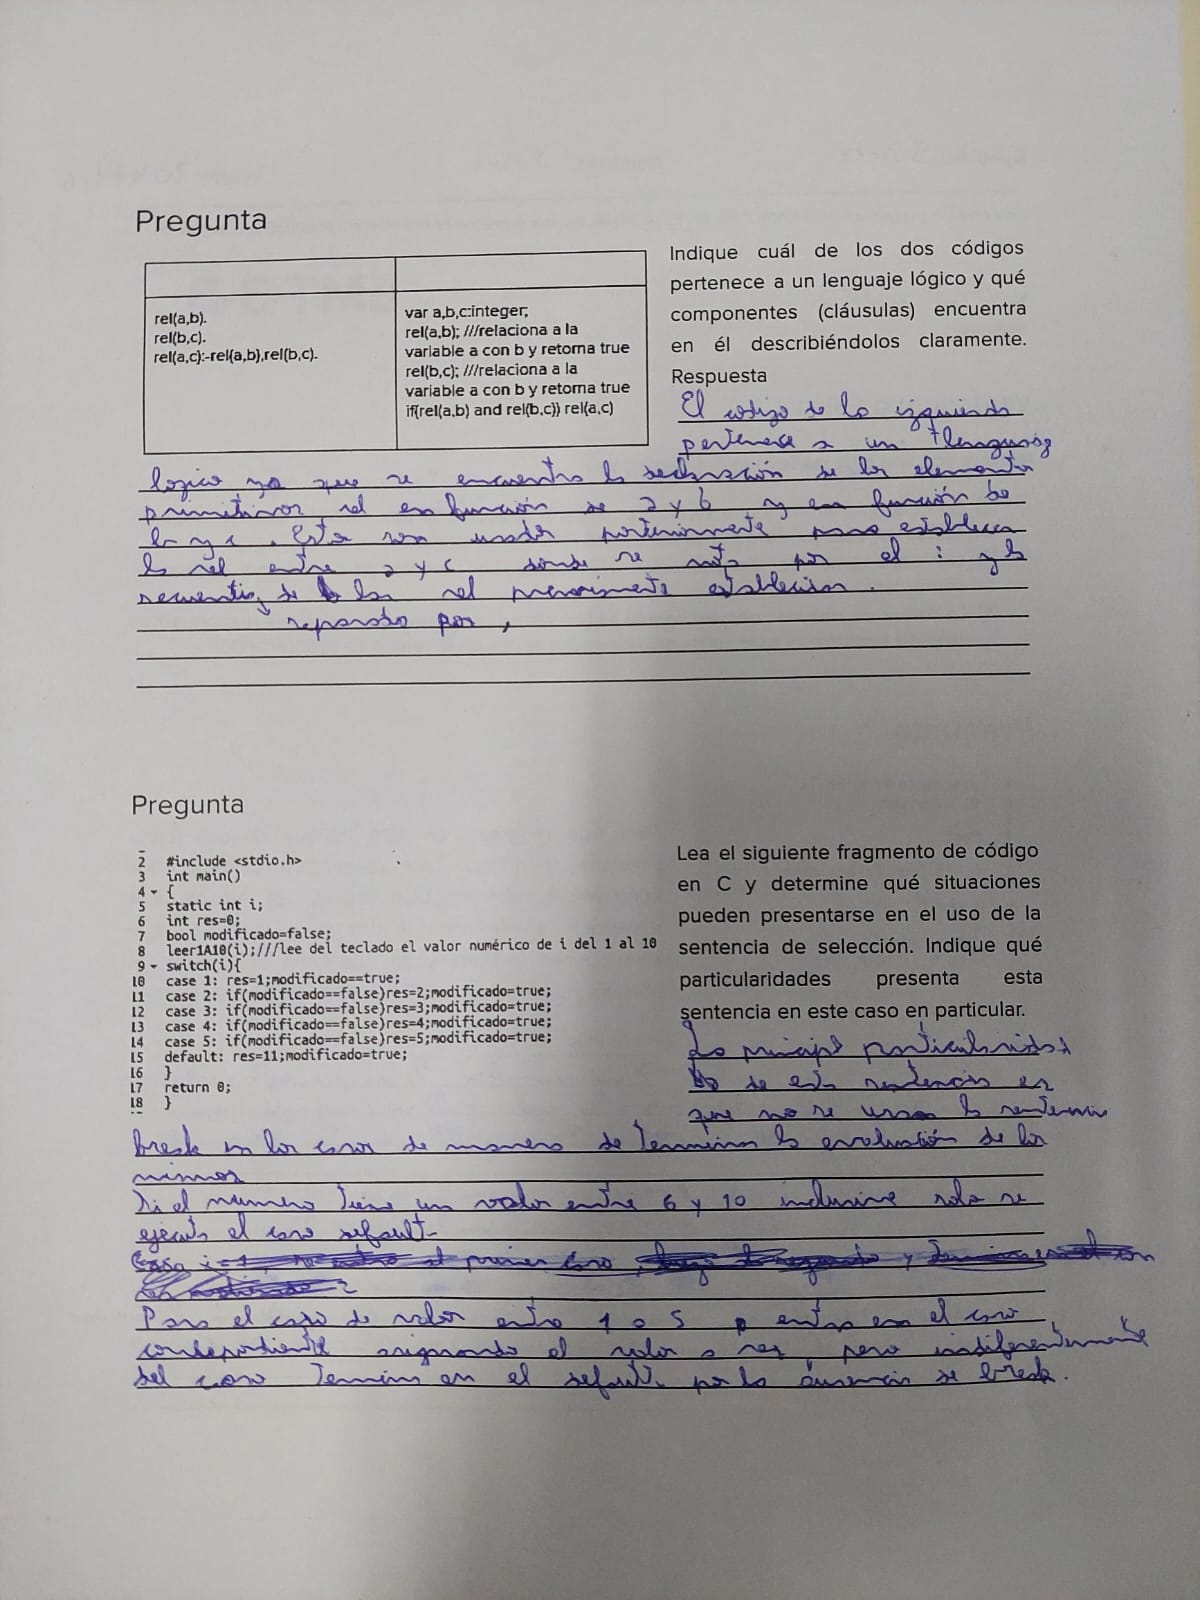 Pregunta
Indique cuál de los dos códigos
pertenece a un lenguaje lógico y qué
componentes (cláusulas) encuentra
en él describiéndolos claramente.
Respuesta
rel(a,b).
rel(b,c).
rel(a,c):-rel(a,b),rel(b,c).
var a,b,c:integer;
rel(a,b); ///relaciona a la
variable a con b y retorna true
rel(b,c); ///relaciona a la
variable a con b y retorna true
if(rel(a,b) and rel(b,c)) rel(a,c)
El codigo de la izquierda
pertenece a un lenguaje
logico ya que se encuentra la declaración de los elementos
primitivos, rel en función de a y b y en función
b y c. Estos son usados posteriormente para establecer
la rel entre a y c donde se nota por el : y la
secuencia de las rel previamente establecidas.
separado por ,
Pregunta
2 #include <stdio.h>
3 int main()
4 {
5 static int i;
6 int res=0;
7 bool modificado=false;
8 leer1A10(i);///lee del teclado el valor numérico de i del 1 al 10
9 switch(i){
10 case 1: res=1;modificado==true;
11 case 2: if(modificado==false)res=2;modificado=true;
12 case 3: if(modificado==false)res=3;modificado=true;
13 case 4: if(modificado==false)res=4;modificado=true;
14 case 5: if(modificado==false)res=5;modificado=true;
15 default: res=11;modificado=true;
16 }
17 return 0;
18 }
Lea el siguiente fragmento de código
en C y determine qué situaciones
pueden presentarse en el uso de la
sentencia de selección. Indique qué
particularidades presenta esta
sentencia en este caso en particular.
La principal particularidad
de esta sentencia es
que no se usan la sentencia
break en los casos de manera de terminar la evaluación de los
mismos
Si el numero tiene un valor entre 6 y 10 inclusive solo se
ejecuta el caso default.
Para el caso de valor entre 1 a 5 entra en el caso
correspondiente asignando el valor a res, pero indiferentemente
del caso termina en el default por la ausencia de break.